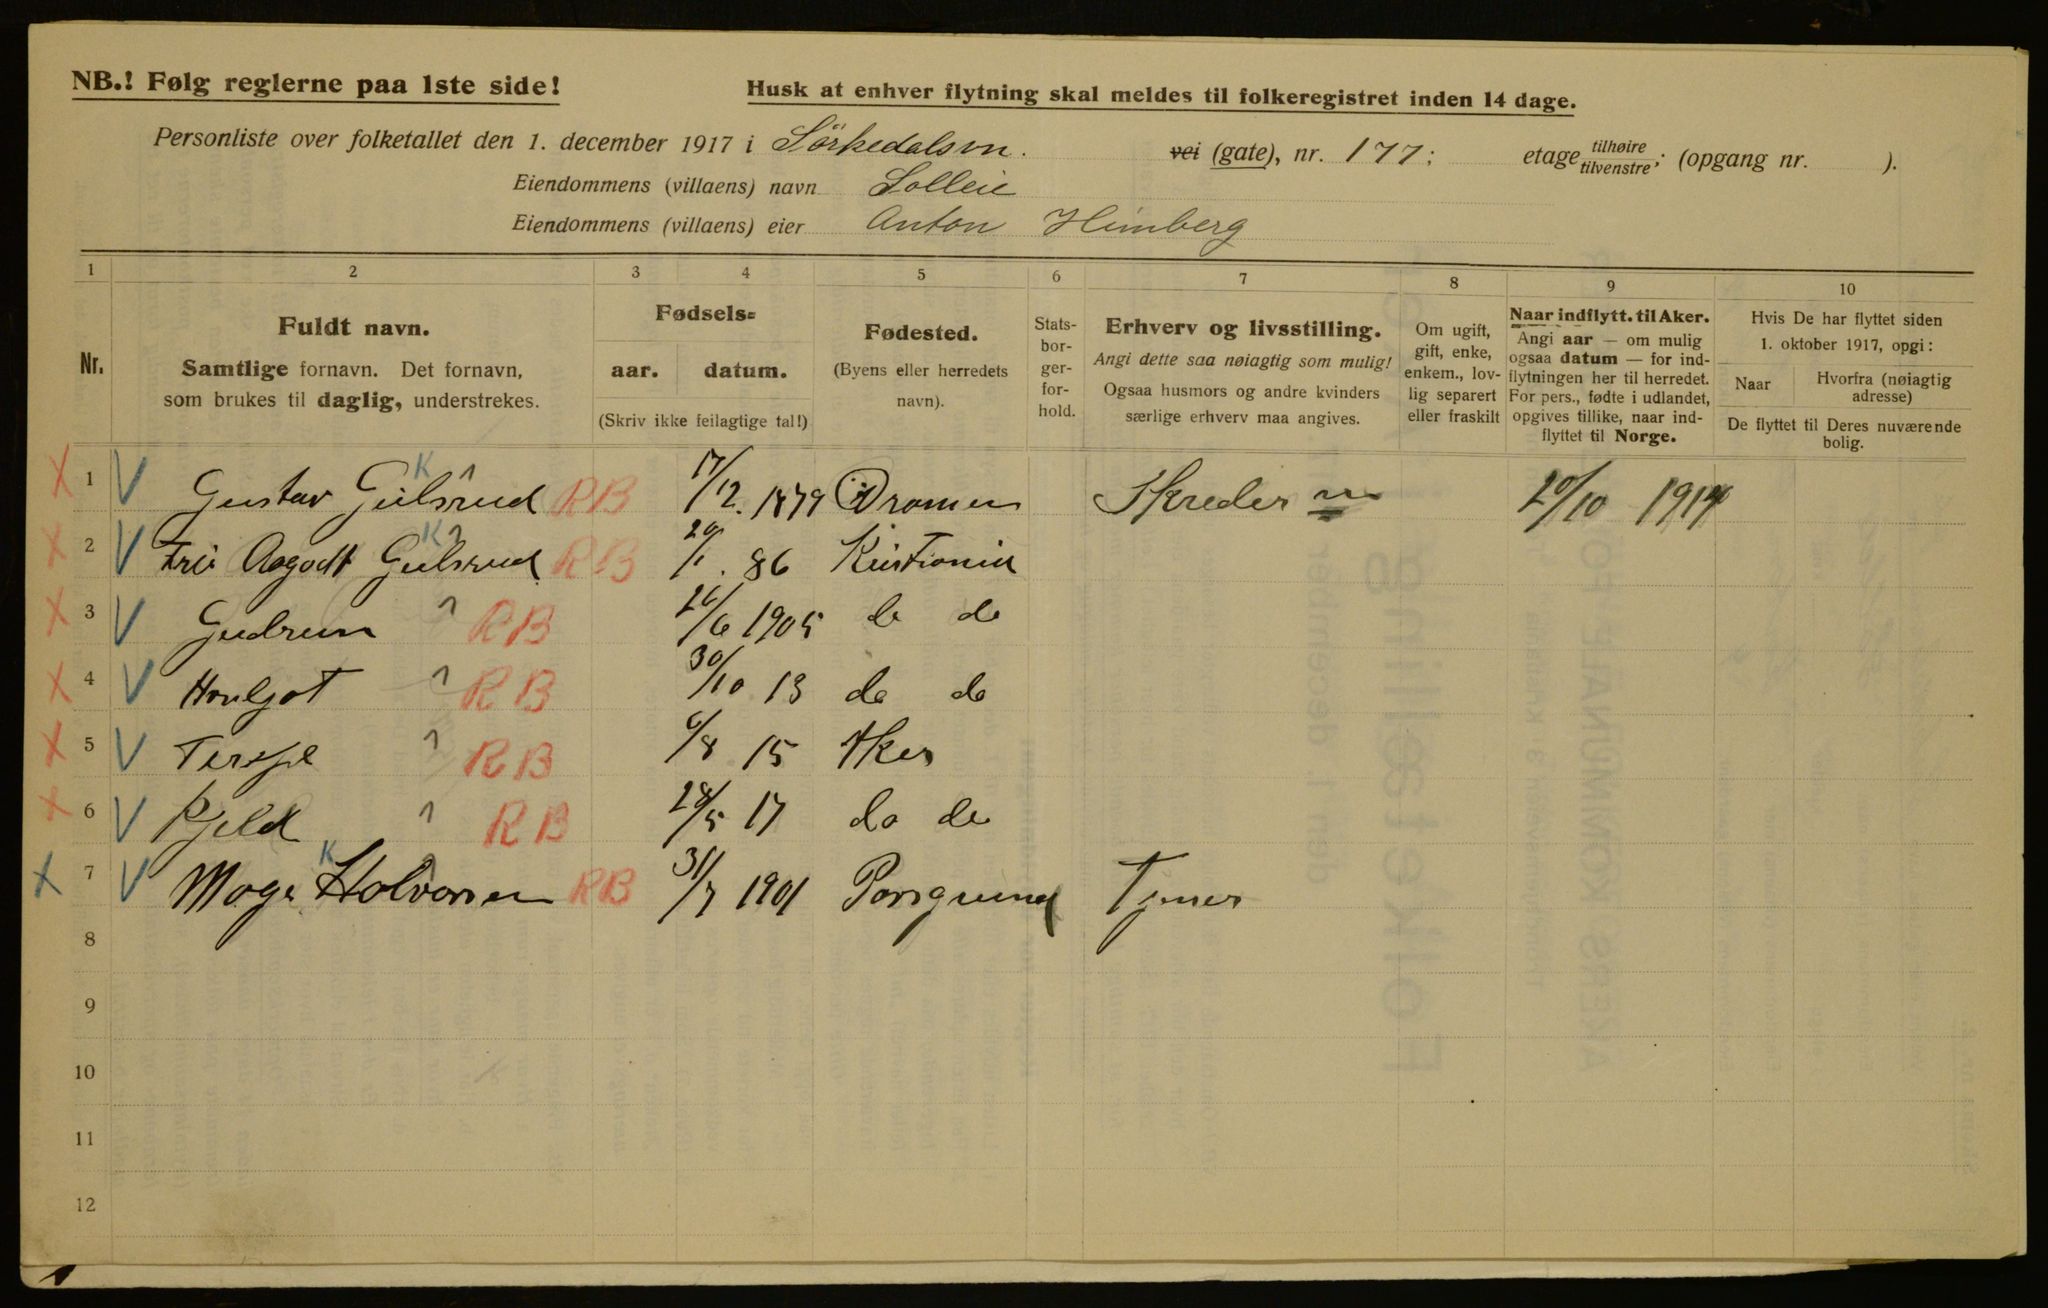 NB.! Følg reglerne paa 1ste side!
Husk at enhver flytning skal meldes til folkeregistret inden 14 dage.
Personliste over folketallet den 1. december 1917 i Sörkedalsvn. vei (gate), nr. 177; etage tilhøire tilvenstre; (opgang nr. ).
Eiendommens (villaens) navn Solleie
Eiendommens (villaens) eier Anton Himberg
1 2 3 4 5 6 7 8 9 10
Nr.
Fuldt navn.
Samtlige fornavn. Det fornavn,
som brukes til daglig, understrekes.
Fødsels=
aar. datum.
(Skriv ikke feilagtige tal!)
Fødested.
(Byens eller herredets
navn).
Stats-
bor-
ger-
for-
hold.
Erhverv og livsstilling.
Angi dette saa nøiagtig som mulig!
Ogsaa husmors og andre kvinders
særlige erhverv maa angives.
Om ugift,
gift, enke,
enkem., lov-
lig separert
eller fraskilt
Naar indflytt. til Aker.
Angi aar — om mulig
ogsaa datum — for ind-
flytningen her til herredet.
For pers., fødte i udlandet,
opgives tillike, naar ind-
flyttet til Norge.
Hvis De har flyttet siden
1. oktober 1917, opgi:
Naar
Hvorfra (nøiagtig
adresse)
De flyttet til Deres nuværende
bolig.
X 1 V Gustav Gulsrud RB 17/12. 1879 Dramen Skreder 20/10 1914
X 2 V Aagodt Gulsrud RB /1. 86 Kristiania
X 3 V Gudrun " RB 26/6 1905 do do
X 4 V " RB 30/10 13 do do
X 5 V " RB 6/8 15 Aker
X 6 V Kjeld " RB 28/5 17 do do
X 7 V Holvorsen RB 31/7 1901 Porsgrund
8
9
10
11
12